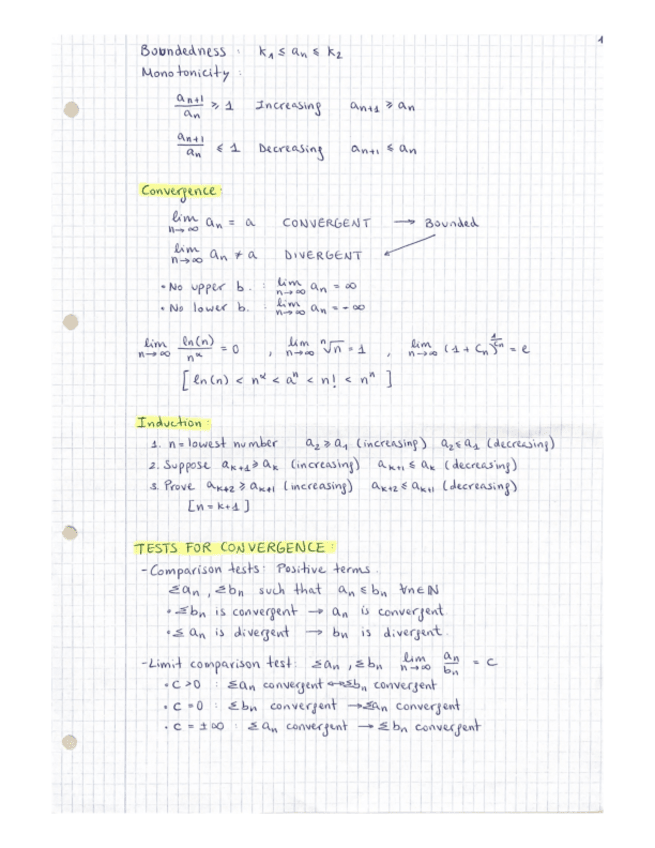 1
Boundedness : k₁ ≤ aₙ ≤ k₂
Monotonicity :
aₙ₊₁/aₙ ≥ 1 Increasing aₙ₊₁ ≥ aₙ
aₙ₊₁/aₙ ≤ 1 Decreasing aₙ₊₁ ≤ aₙ
Convergence:
lim n→∞ aₙ = a CONVERGENT → Bounded
lim n→∞ aₙ ≠ a DIVERGENT ←
• No upper b. : lim n→∞ aₙ = ∞
• No lower b. : lim n→∞ aₙ = -∞
lim n→∞ ln(n)/n^α = 0 , lim n→∞ ⁿ√n = 1 , lim n→∞ (1 + Cₙ)^(1/Cₙ) = e
[ ln(n) < n^α < aⁿ < n! < nⁿ ]
Induction:
1. n = lowest number a₂ ≥ a₁ (increasing) a₂ ≤ a₁ (decreasing)
2. Suppose aₖ₊₁ ≥ aₖ (increasing) aₖ₊₁ ≤ aₖ (decreasing)
3. Prove aₖ₊₂ ≥ aₖ₊₁ (increasing) aₖ₊₂ ≤ aₖ₊₁ (decreasing)
[n = k+1]
TESTS FOR CONVERGENCE:
- Comparison tests: Positive terms.
Σaₙ, Σbₙ such that aₙ ≤ bₙ ∀n∈ℕ
• Σbₙ is convergent → aₙ is convergent
• Σaₙ is divergent → bₙ is divergent.
- Limit comparison test: Σaₙ, Σbₙ lim n→∞ aₙ/bₙ = C
• C > 0 : Σaₙ convergent ↔ Σbₙ convergent
• C = 0 : Σbₙ convergent → Σaₙ convergent
• C = ±∞ : Σaₙ convergent → Σbₙ convergent